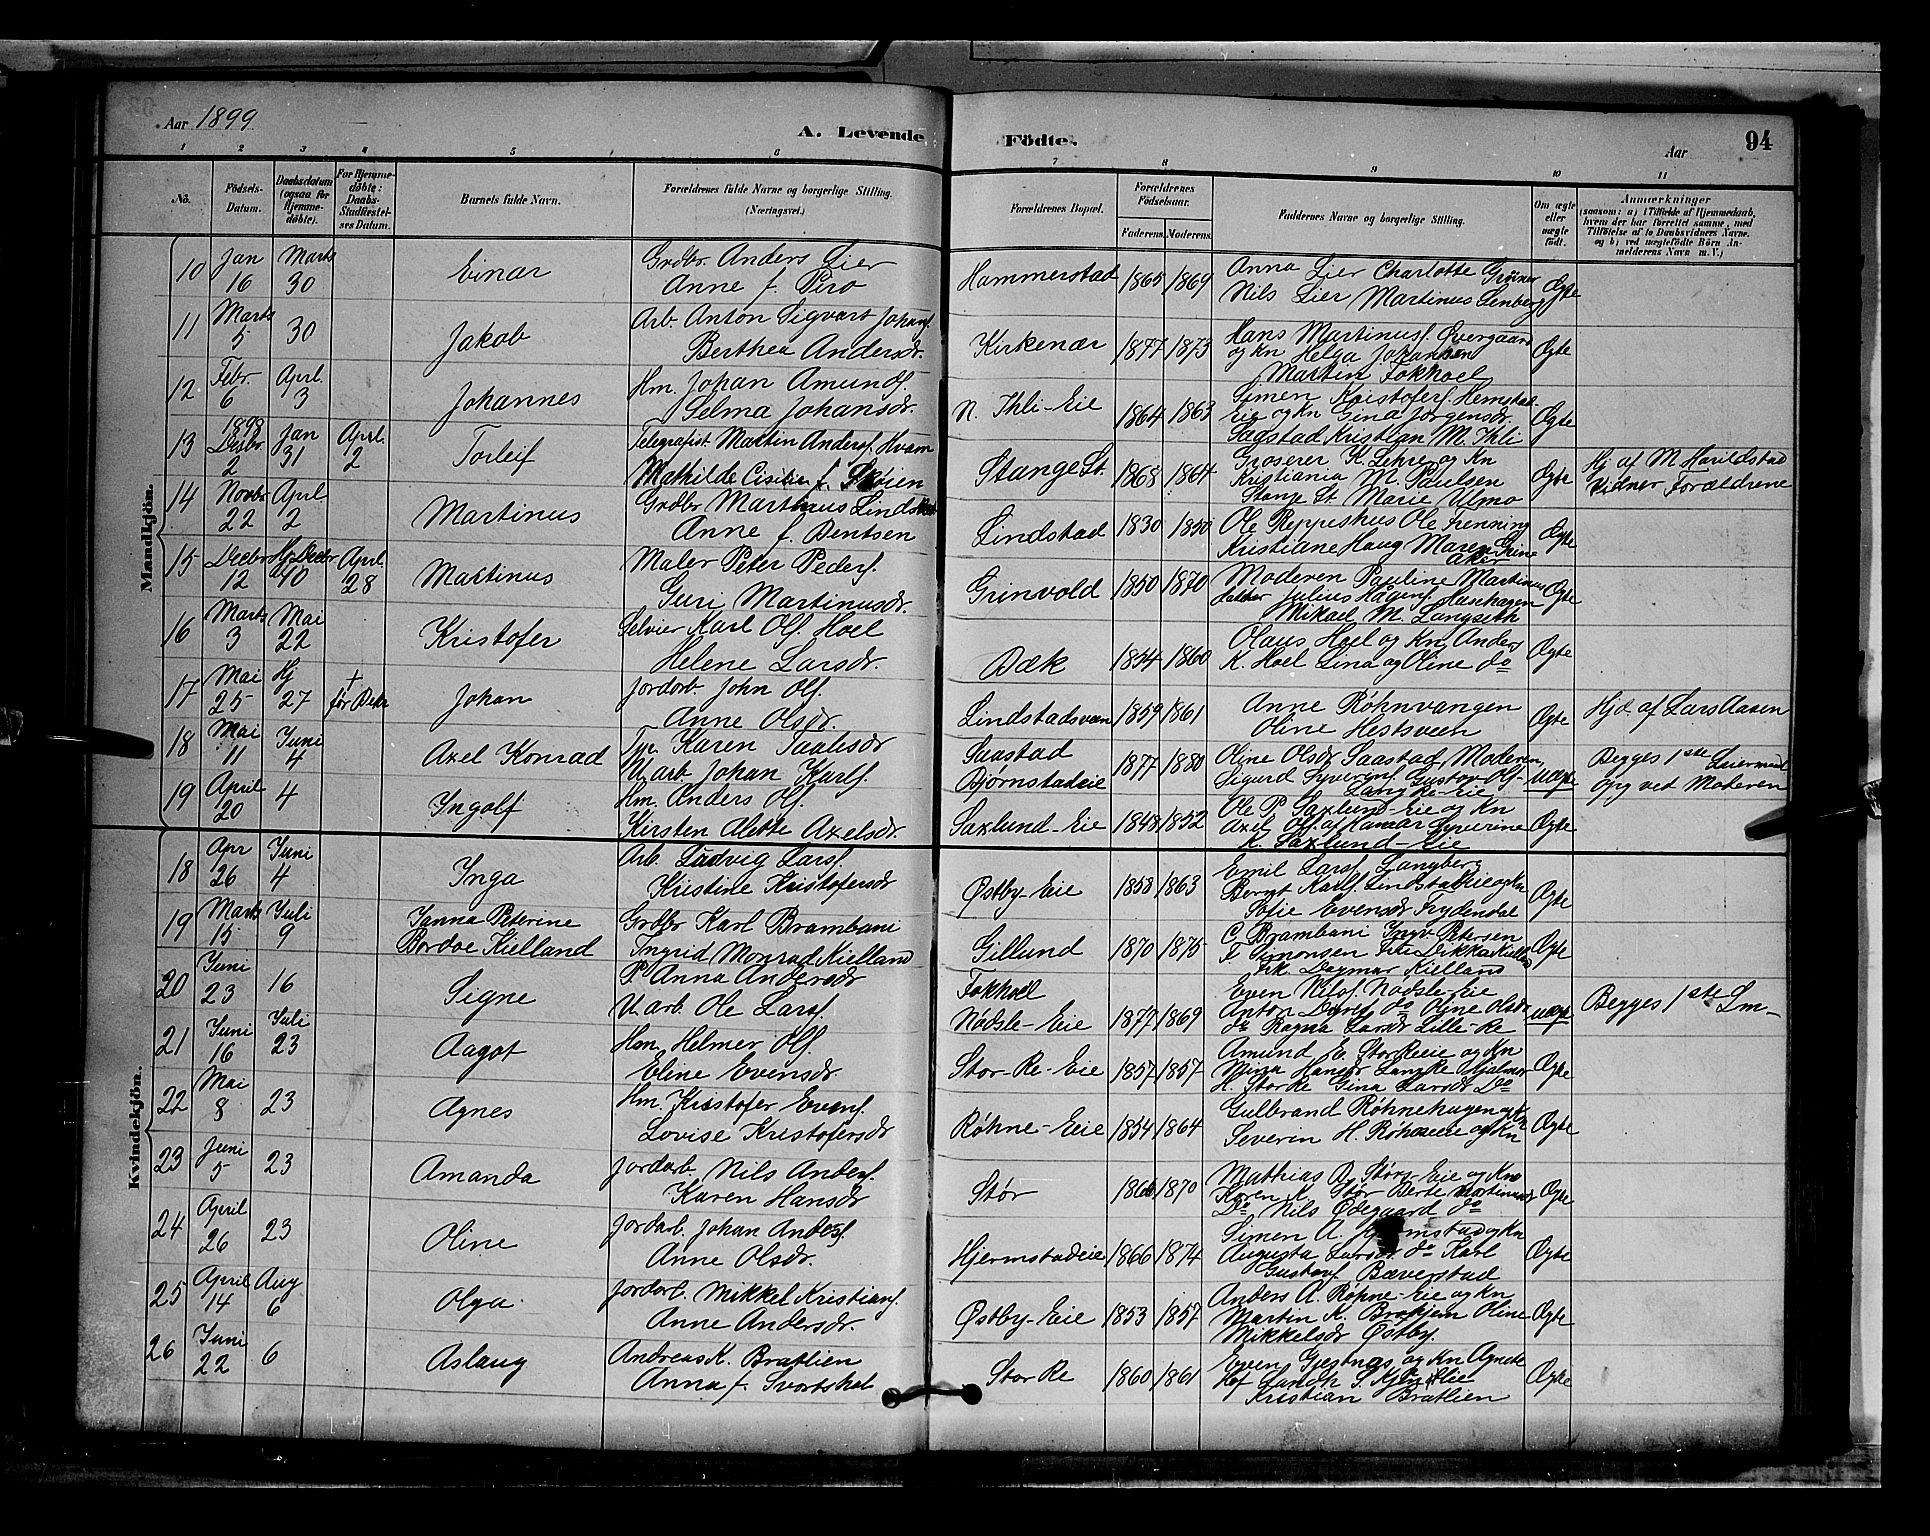 Aar 1899
A. Levende
Födte.
Aar
94
1 2 3 4 5 6 7 8 9 10 11
No.
Födsels-Datum.
Daabsdatum (ogsaa for Hjemme-döbte).
For Hjemme-döbte: Daabs-Stadfæstel-ses Datum.
Barnets fulde Navn.
Forældrenes fulde Navne og borgerlige Stilling. (Næringsvei.)
Forældrenes Bopæl.
Forældrenes Födselsaar.
Faderens. Moderens.
Faddernes Navne og borgerlige Stilling.
Om ægte eller uægte födt.
Anmærkninger
(saasom: a) i Tilfælde af Hjemmedaab, hvem der har forrettet samme, med Tilföielse af to Daabsvidners Navne. og b) ved uægtefödte Börn Anmelderens Navn m. V.)
Mandkjön.
10 Jan 16 Marts 30 Einar Grdbr. Anders Lier
Anne f. Piro
Hammerstad 1865 1869 Anna Lier Charlotte Gröner
Nils Lier Martinus Lenberg Ægte
11 Marts 5 30 Jakob Arb. Anton Sigvart Johans.
Berthea Andersdr.
Kirkenær 1877 1873 Hans Martinus. Övergaard
og Kn Helga Johansen
Martin Fokhoel Ægte
12 Febr. 6 April. 3 Johannes Hm. Johan Amunds.
Selma Johansdr.
N. Ihli-Eie 1864 1863 Simen Kristofers. Hemstad-
Eie og Kn Gina Jörgensdr.
Saastad Kristian M. Ihli Ægte
13 1898 Decbr. 2 Jan 31 April. 2 Torleif Telegrafist Martin Anders. Hvam
Mathilde Cisilie f. Skøien
Stange St. 1868 1864 Groserer K. Lehre og Kn
Kristiania M. Paulsen
Stange St Marie Ulmo Ægte
Hj af M Harildstad
Vidner Forældrene
14 Novbr 22 April 2 Martinus Grdbr Martinus Lindstad
Anne f. Bentsen
Lindstad 1830 1850 Ole Reppeshus Ole Frenning
Kristiane Haug Maren Grine
Aker Ægte
15 Decbr 12 Hj Decbr April 28 Martinus Maler Peter Peders.
Guri Martinusdr.
Grinvold 1850 1870 Moderen Pauline Martinus
datter Julius Hagens. Hanshagen
Mikael M. Langseth Ægte
16 Marts 3 Mai 22 Kristofer Selvier Karl Ols. Hoel
Helene Larsdr.
Bæk 1854 1860 Olaus Hoel og Kn Anders
K. Hoel Lina og Oline do Ægte
17 Mai 25 Hj 27 † før Bekr Johan Jordarb. John Ols.
Anne Olsdr.
Lindstadsveen 1859 1861 Anne Röhnvangen
Oline Hestsveen Ægte Hjd. af Lars Aasen
18 Mai 11 Juni 4 Axel Konrad Tyr. Karen Paulsdr
U arb. Johan Karls.
Saastad
Bjørnstadeie 1877 1880 Oline Olsdr Saastad, Moderen,
Sigurd Syverens. Gustav Ols-
Langke-Eie uægte Begges 1ste Leiermaal
opg ved Moderen
19 April 20 4 Ingolf Hm. Anders Ols.
Kirsten Alette Axelsdr.
Saxlund-Eie 1848 1852 Ole P. Saxlund-Eie og Kn
Axel Ols. af Hamar Syverine
K. Saxlund-Eie Ægte
Kvindekjön.
18 Apr 26 Juni 4 Inga Arb. Ludvig Lars.
Kristine Kristofersdr
Østby-Eie 1858 1863 Emil Lars. Langberg
Bernt Karls. Lindstadeie og Kn
Sofie Evensdr Frydendal Ægte
19 Marts 15 Juli 9 Janna Peterine
Bordoe Kielland Grdbr Karl Brambani
Ingrid Monrad Kielland
Gillund 1870 1875 C. Brambani Ingv. Petersen
F. Simonsen Frk. Dikka Kielland
Frk. Dagmar Kielland Ægte
20 Juni 23 16 Signe P. Anna Andersdr
U. arb. Ole Lars.
Fokhoel
Nødsle-Eie 1877 1869 Even Nils. Nødsle-Eie
Anton Davids do Oline Olsdr
do Ragna Larsdr Lille-Re uægte Begges 1ste Lm-
21 Juni 16 Juli 23 Aagot Hm. Helmer Ols.
Eline Evensdr
Stor-Re-Eie 1857 1857 Amund E. StorReeie og Kn
Mina Hansdr Langke Hjalmar
H. StorRe Gina Larsdr Do Ægte
22 Mai 8 23 Agnes Hm. Kristofer Evens.
Lovise Kristofersdr
Røhne-Eie 1854 1864 Gulbrand Røhnehagen og Kn
Severin H. Røhneeie og Kn Ægte
23 Juni 5 23 Amanda Jordarb. Nils Anders.
Karen Hansdr
Stør 1866 1870 Mathias D. Störs Eie og Kn
Karen K. Stør Berte Martinusdr
Do Nils Ödegaard do Ægte
24 April 26 23 Oline Jordarb. Johan Anders.
Anne Olsdr.
Hjermstadeie 1866 1874 Simen A. Hjermstad og Kn
Augusta Larsdr. do Karl
Gustavs. Bæverstad Ægte
25 April 14 Aug 6 Olga Jordarb. Mikkel Kristians.
Anne Andersdr.
Østby-Eie 1853 1857 Anders A. Røhne-Eie og Kn
Martin K. Brakjem Oline
Mikkelsdr Østby. Ægte
26 Juni 22 6 Aslaug Andreas K. Bratlien
Anna f. Svortshol
Stor Re 1860 1861 Even Gjestnas og Kn Agnete
Kristian Bratlien Ægte